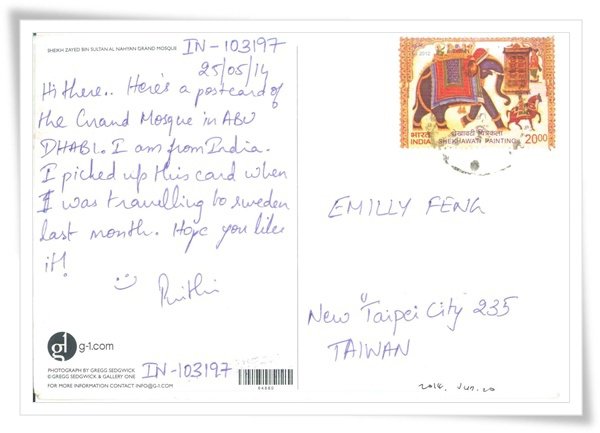 SHEIKH ZAYED BIN SULTAN AL NAHYAN GRAND MOSQUE
IN-103197
25/05/14
Hi there.. Here's a postcard of
the Grand Mosque in ABU
DHABI. I am from India.
I picked up this card when
I was travelling to sweden
last month. Hope you like
it!
g-1.com
PHOTOGRAPH BY GREGG SEDGWICK
© GREGG SEDGWICK & GALLERY ONE
FOR MORE INFORMATION CONTACT INFO@G-1.COM
IN-103197
64860
2012
भारत
INDIA
शेखावटी चित्रकला
SHEKHAWATI PAINTING
2000
EMILLY FENG
New Taipei City 235
TAIWAN
2014. Jun.20